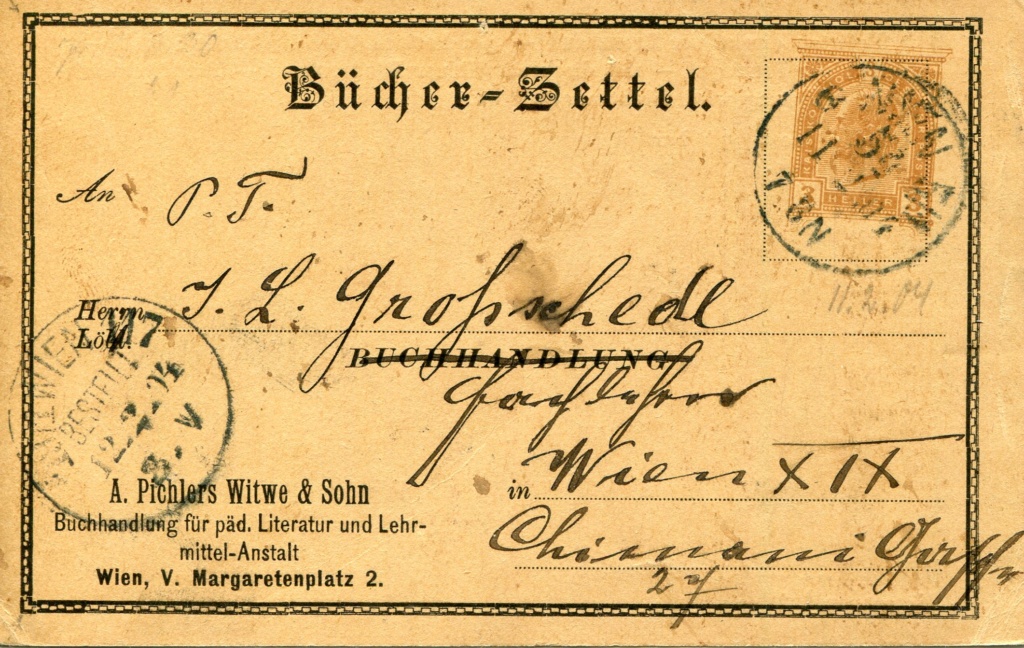 Bücher-Zettel.
An P. T.
Herrn J. L. Großschedl
Löbl.
BUCHHANDLUNG
Fachlehrer
in Wien XIX
Chimani Gasse
27
A. Pichlers Witwe & Sohn
Buchhandlung für päd. Literatur und Lehr-
mittel-Anstalt
Wien, V. Margaretenplatz 2.
WIEN
11
3 HELLER
11.2.04
WIEN 117
BESTELLT
12.2.04
8. V